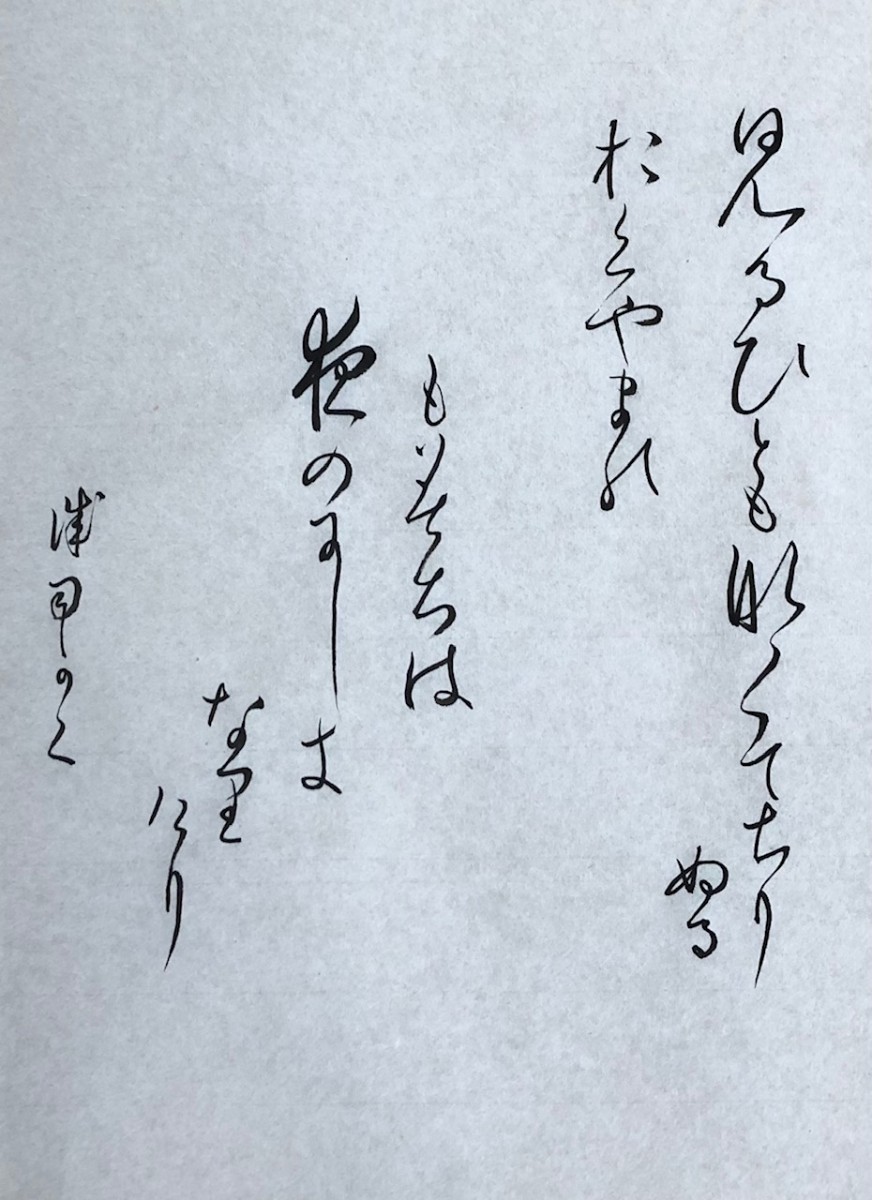 見るひともなくてちり
ぬる
おくやまの
もみちは
夜のにしき
なり
けり